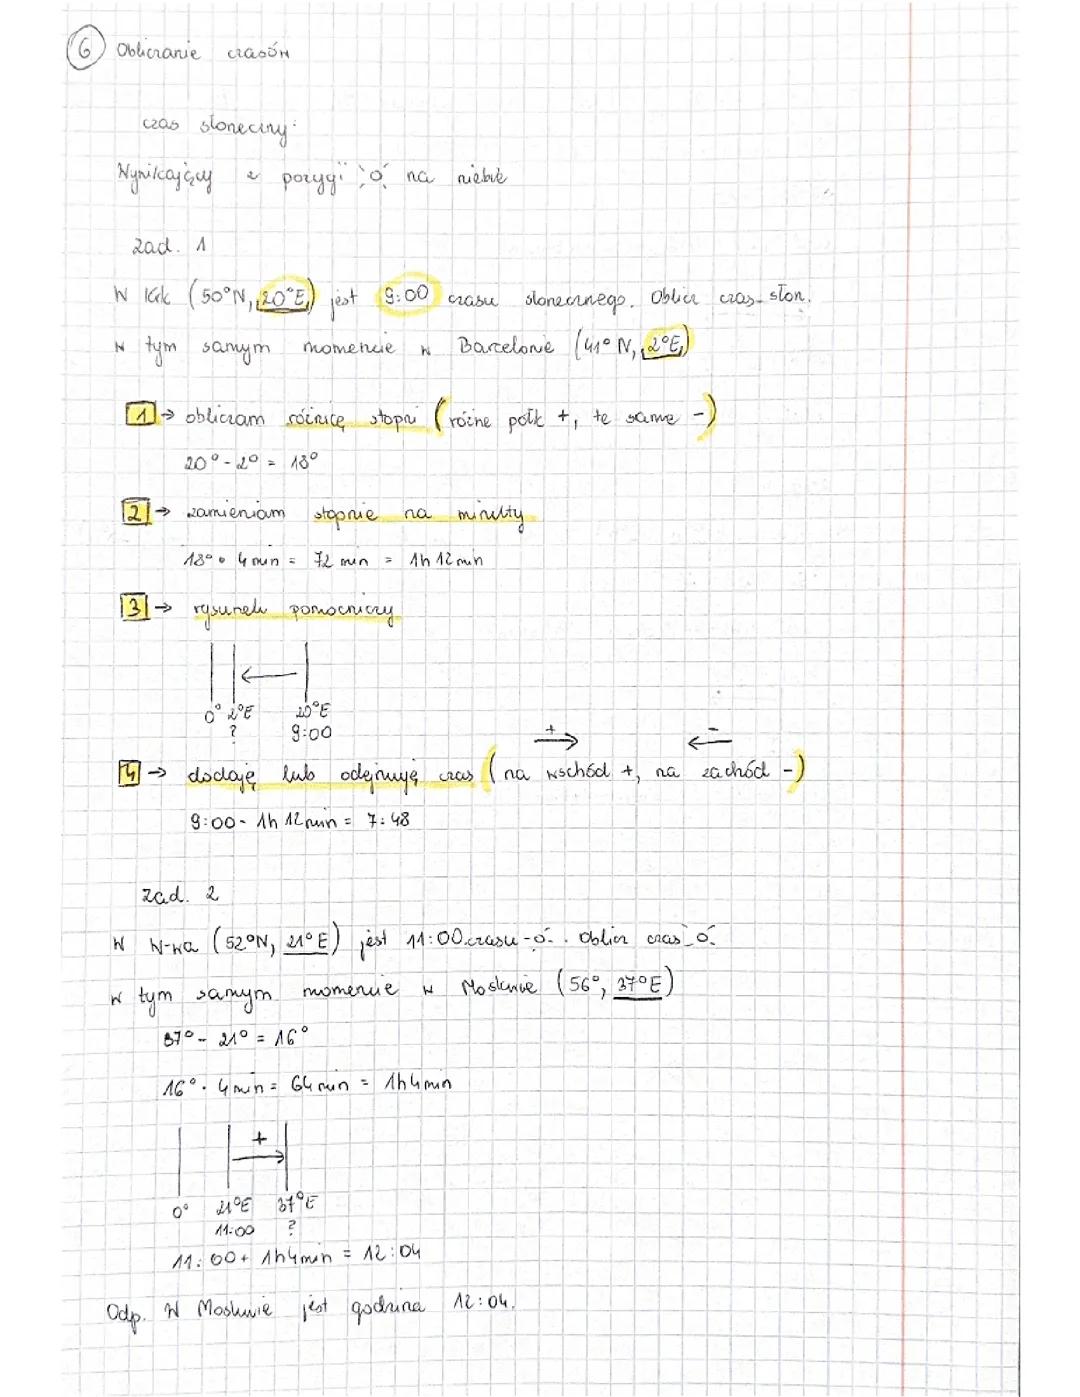 6 Obliczanie czasów
czas słoneczny:
Wynikający z pozycji na niebie
zad. 1
W Krk (50°N, 20°E) jest 9:00 czasu słonecznego. Oblicz czas słon.
w tym samym momencie w Barcelonie (41°N, 2°E)
1 → obliczam różnicę stopni (różne półk +, te same -)
20° - 2° = 18°
2 → zamieniam stopnie na minuty
18° • 4 min = 72 min = 1h 12 min
3 → rysunek pomocniczy
0° 2°E 20°E
? 9:00
+ -
4 → dodaję lub odejmuję czas (na wschód +, na zachód -)
9:00 - 1h 12min = 7:48
zad. 2
W W-wa (52°N, 21°E) jest 11:00 czasu . Oblicz czas
w tym samym momencie w Moskwie (56°, 37°E)
37° - 21° = 16°
16° · 4 min = 64 min = 1h 4min
+
0° 21°E 37°E
11:00 ?
11:00 + 1h 4min = 12:04
Odp. W Moskwie jest godzina 12:04.